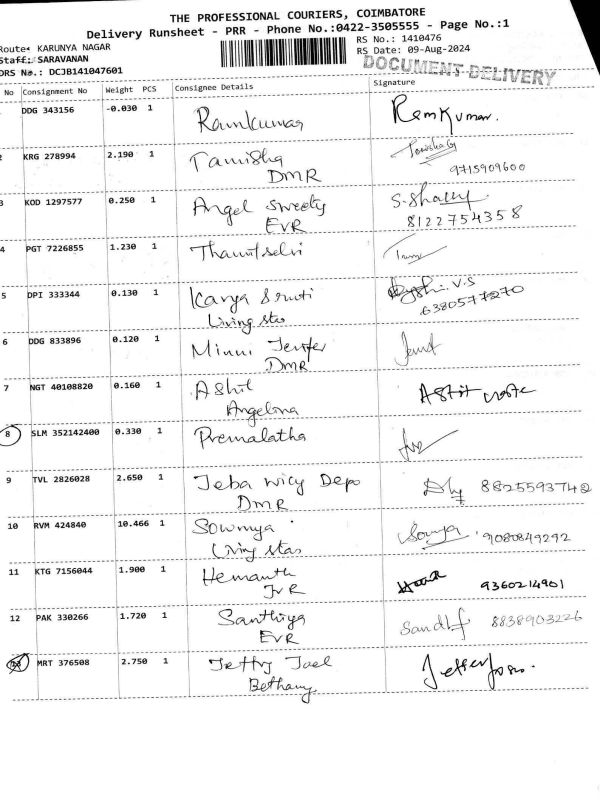 THE PROFESSIONAL COURIERS, COIMBATORE
Delivery Runsheet - PRR - Phone No.:0422-3505555 - Page No.:1
Route: KARUNYA NAGAR
RS No.: 1410476
Staff: SARAVANAN
RS Date: 09-Aug-2024
DRS No.: DCJB141047601
DOCUMENT DELIVERY
No Consignment No Weight PCS Consignee Details Signature
DDG 343156 -0.030 1 Ramkumar Ramkumar.
2 KRG 278994 2.190 1 Tanisha
DMR 9715909600
3 KOD 1297577 0.250 1 Angel Sweety
EVR 8122754358
4 PGT 7226855 1.230 1
5 DPI 333344 0.130 1 Kavya Sruti V.S
Living Sto 6380577270
6 DDG 833896 0.120 1 Minni
DMR
7 NGT 40108820 0.160 1 Ashil
Angelina
8 SLM 352142400 0.330 1 Premalatha
9 TVL 2826028 2.650 1 Jeba wicy Depo 8825593742
DMR
10 RVM 424840 10.466 1 Sowmya Sowya 9080849292
Living Stas
11 KTG 7156044 1.900 1 Hemanth 9360214901
JVR
12 PAK 330266 1.720 1 Santhiya 8838903226
EVR
13 MRT 376508 2.750 1 Jeffry Joel
Bethany